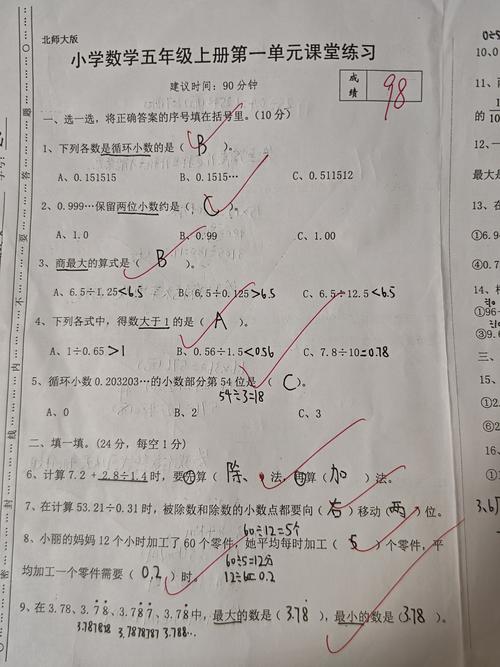 北师大版
小学数学五年级上册第一单元课堂练习
建议时间：90分钟
成绩 98
一、选一选，将正确答案的序号填在括号里。(10分)
1、下列各数是循环小数的是（ B ）。
A、0.151515 B、0.1515… C、0.511512
2、0.999…保留两位小数约是（ C ）。
A、1.0 B、0.99 C、1.00
3、商最大的算式是（ B ）。
A、6.5÷1.25<6.5 B、6.5÷0.125>6.5 C、6.5÷12.5<6.5
4、下列各式中，得数大于1的是（ A ）。
A、1÷0.65>1 B、0.56÷1.5<0.56 C、7.8÷10=0.78
5、循环小数0.203203…的小数部分第54位是（ C ）。
54÷3=18
A、0 B、2 C、3
二、填一填。(24分，每空1分)
6、计算7.2+2.8÷1.4时，要先算（ 除 ）法，再算（ 加 ）法。
7、在计算53.21÷0.31时，被除数和除数的小数点都要向（ 右 ）移动（ 两 ）位。
60÷12=5个
8、小丽的妈妈12个小时加工了60个零件，她平均每时加工（ 5 ）个零件，平
60÷5=12分
均加工一个零件需要（ 0.2 ）时。
12÷60=0.2
9、在3.78、3.7̇8̇、3.7̇87̇、3.78̇中，最大的数是（3.78̇），最小的数是（3.78）。
3.787878 3.7878787 3.788…